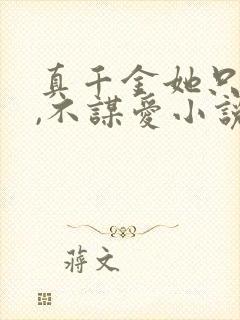 真千金她只
,不謀愛小說
蔣文